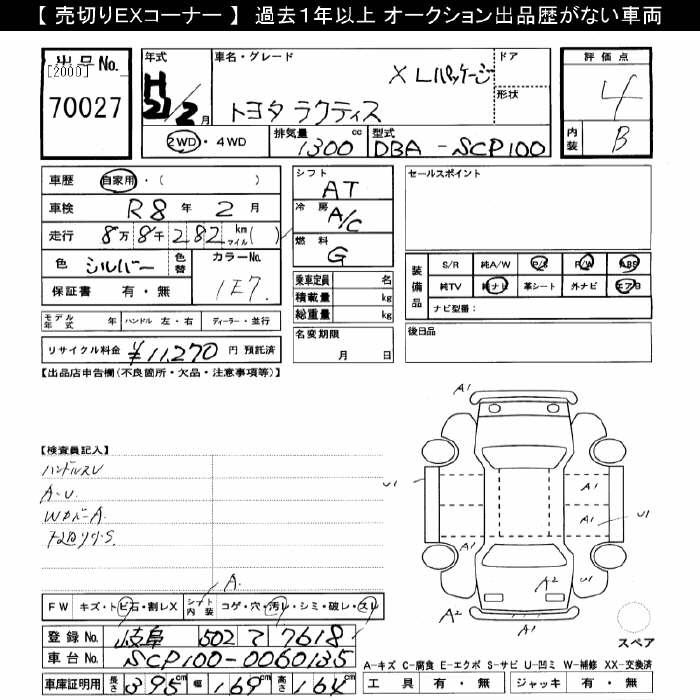 【 売切りEXコーナー 】 過去1年以上 オークション出品歴がない車両
出品No.
[2000]
70027
年式
H21/2月
車名・グレード
X Lパッケージ
トヨタ ラクティス
ドア
形状
2WD・4WD
排気量 1300 cc
型式 DBA-SCP100
評価点
4
内装 B
車歴 自家用・( )
車検 R8年 2月
走行 8万8千282 km マイル( )
色 シルバー 色替
カラーNo. 1E7
保証書 有・無
シフト
AT
冷房
A/C
燃料
G
乗車定員 名
積載量 kg
総重量 kg
名変期限
月 日
セールスポイント
装備品
S/R 純A/W P/S P/W ABS
純TV 純ナビ 革シート 外ナビ エアB
ナビ型番:
後日品
モデル年式 年 ハンドル 左・右 ディーラー・並行
リサイクル料金 ¥11,270 円 預託済
【出品店申告欄(不良箇所・欠品・注意事項等)】
【検査員記入】
ハンドルスレ
A・U
WカバーA
A1
A1
U1
A1
A1
U1
A1
A2
A1
A2
A.
FW キズ・トビ石・割レX
シート内装 コゲ・穴・汚レ・シミ・破レ・スレ
登録No. 岐阜 502 て 7618
車台No. SCP100-0060135
車庫証明用 長さ 395 幅 169cm 高さ 164cm
スペア
A-キズ C-腐食 E-エクボ S-サビ U-凹ミ W-補修 XX-交換済
工具 有・無 ジャッキ 有・無